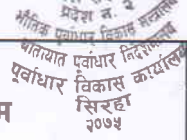 प्रदेश नं. २
भौतिक पूर्वाधार विकास मन्त्रालय
यातायात पूर्वाधार निर्देशनालय
पूर्वाधार विकास कार्यालय
सिरहा
२०७५
म